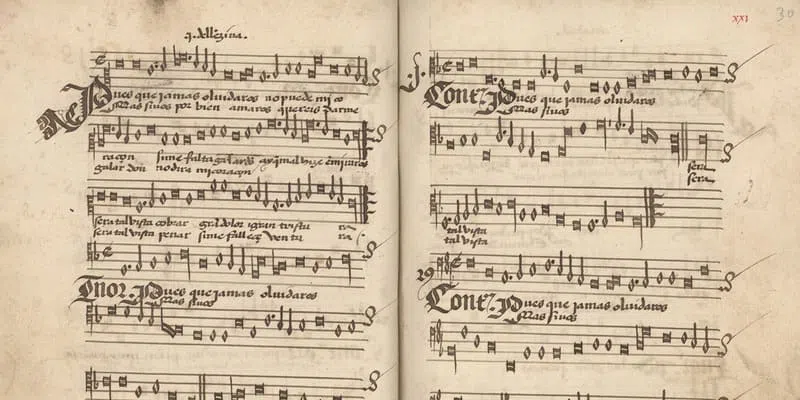 Pues que jamas olvidaros no puede mi co
Mas si vos por bien amaros quereis darme
raçon si me falta galardos
galardon no dira mi coraçon
sera tal vista cobrar gra dolor i gran tristu ra
sera tal vista penar si me fallece ventu ra
Tenor. Pues que jamas olvidaros
Mas si vos
xxi
30
Contr. Pues que jamas olvidaros
Mas si vos
sera
sera
tal vista
tal vista
Contr. Pues que jamas olvidaros
Mas si vos